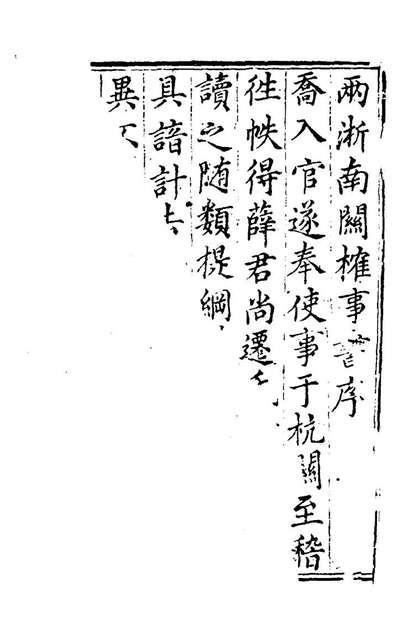 兩浙南關榷事書序
喬入官遂奉使事于杭關至稽
徃帙得薛君尚遷
讀之随類提綱
具諳計
異